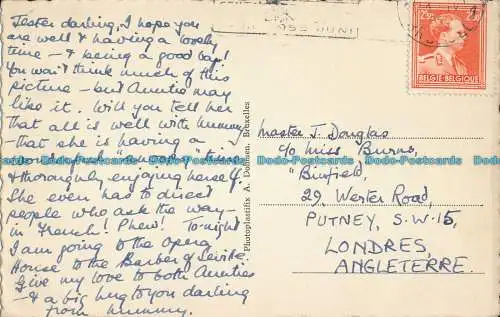 Jester darling, I hope you
are well & having a lovely
time - & being a good boy!
You won't think much of this
picture - but Aunties may
like it. Will you tell her
that all is well with mummy
- that she is having a
time
& thoroughly enjoying herself.
She even has to direct
people who ask the way -
in French! Phew! To-night
I am going to the Opera
House to the Barber of Seville.
Give my love to both Aunties
- & a big hug to you darling
from mummy.
Photoplastifix A. Dohmen, Bruxelles
Master J. Douglas
c/o Miss Burns,
"Binfield",
29, Wester Road
PUTNEY, S.W.15,
LONDRES,
ANGLETERRE.
2F50 2F50
BELGIE-BELGIQUE
Dodo-Postcards Dodo-Postcards Dodo-Postcards Dodo-Postcards